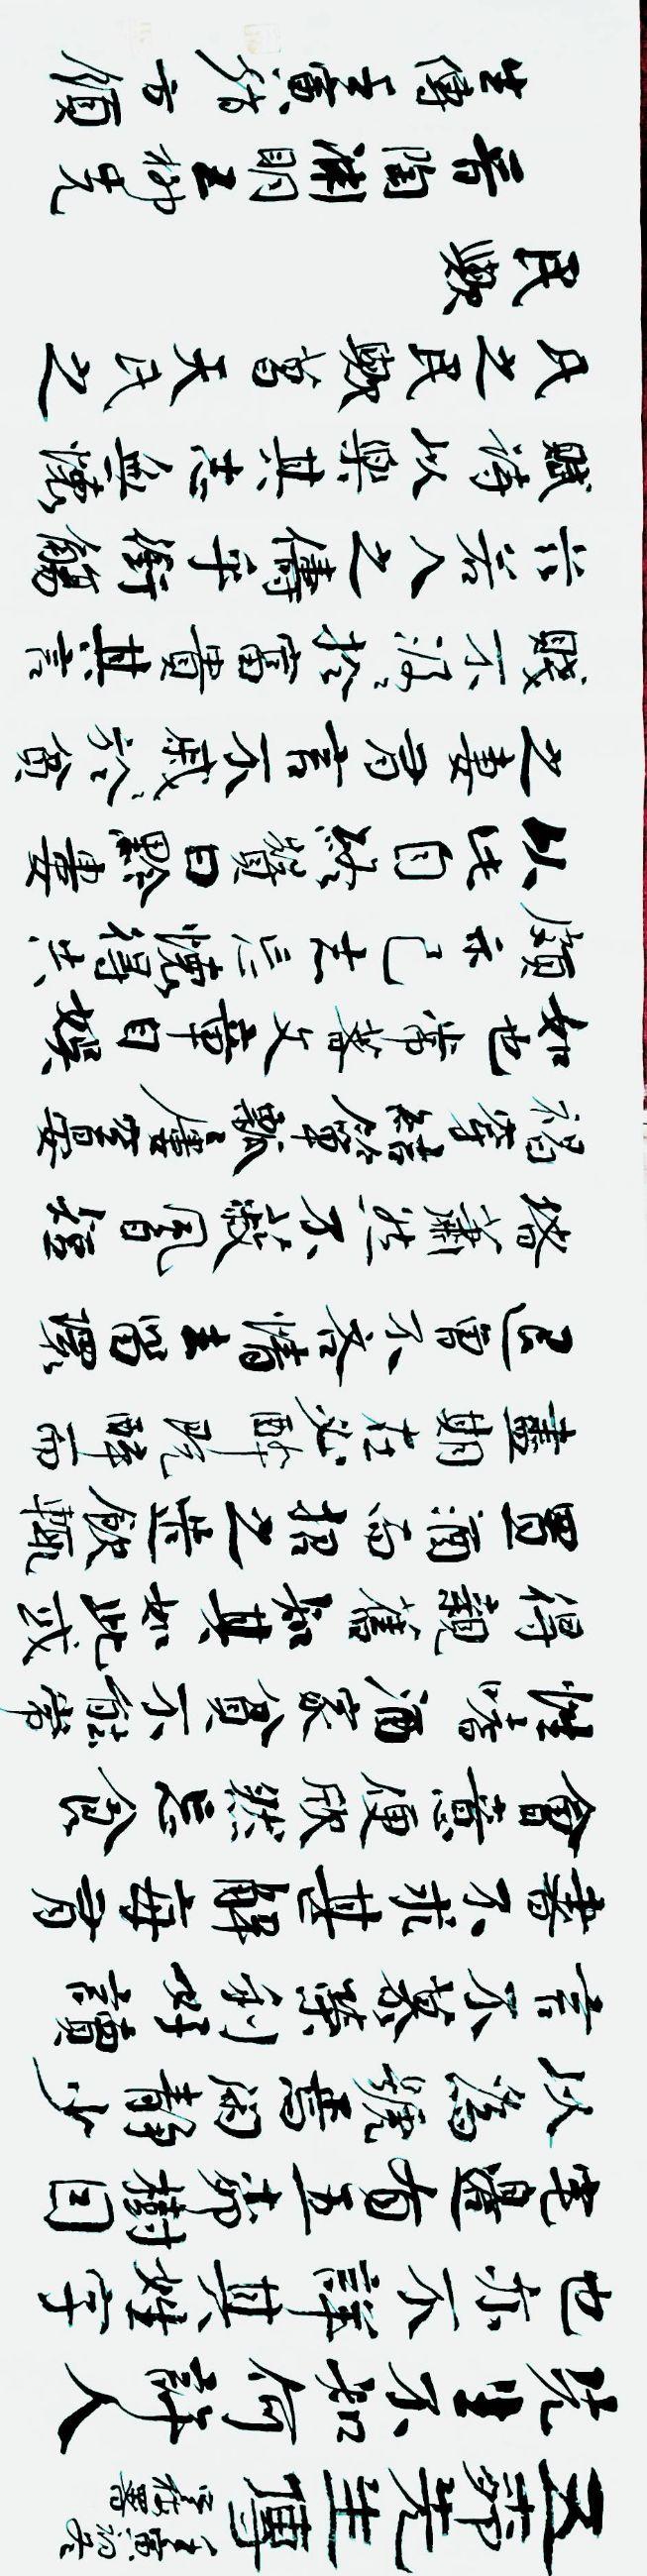 五柳先生傳
先生不知何許人
也亦不詳其姓字
宅邊有五柳樹因
以為號焉閑靜少
言不慕榮利好讀
書不求甚解每有
會意便欣然忘食
性嗜酒家貧不能常
得親舊知其如此或
置酒而招之造飲輒
盡期在必醉既醉而
退曾不吝情去留環
堵蕭然不蔽風日短
褐穿結簞瓢屢空晏
如也常著文章自娛
頗示己志忘懷得失
以此自終贊曰黔婁
之妻有言不戚〻於貧
賤不汲〻於富貴其言
茲若人之儔乎銜觴
賦詩以樂其志無懷
氏之民歟葛天氏之
民歟
晉陶淵明五柳先
生傳壬寅